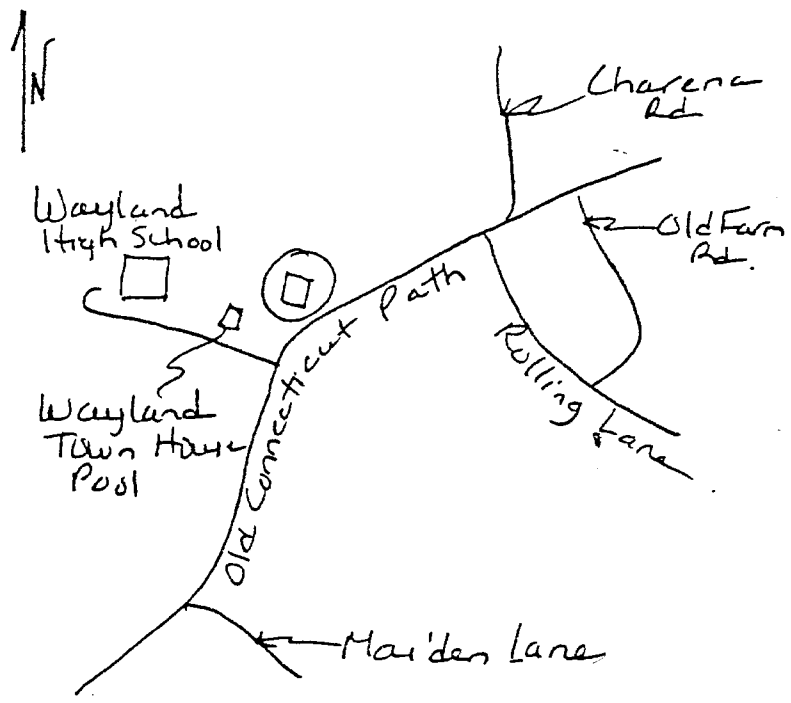 N
Charena
Rd
Wayland
High School
Old Farm
Rd.
Old Connecticut Path
Rolling Lane
Wayland
Town House
Pool
Maiden Lane